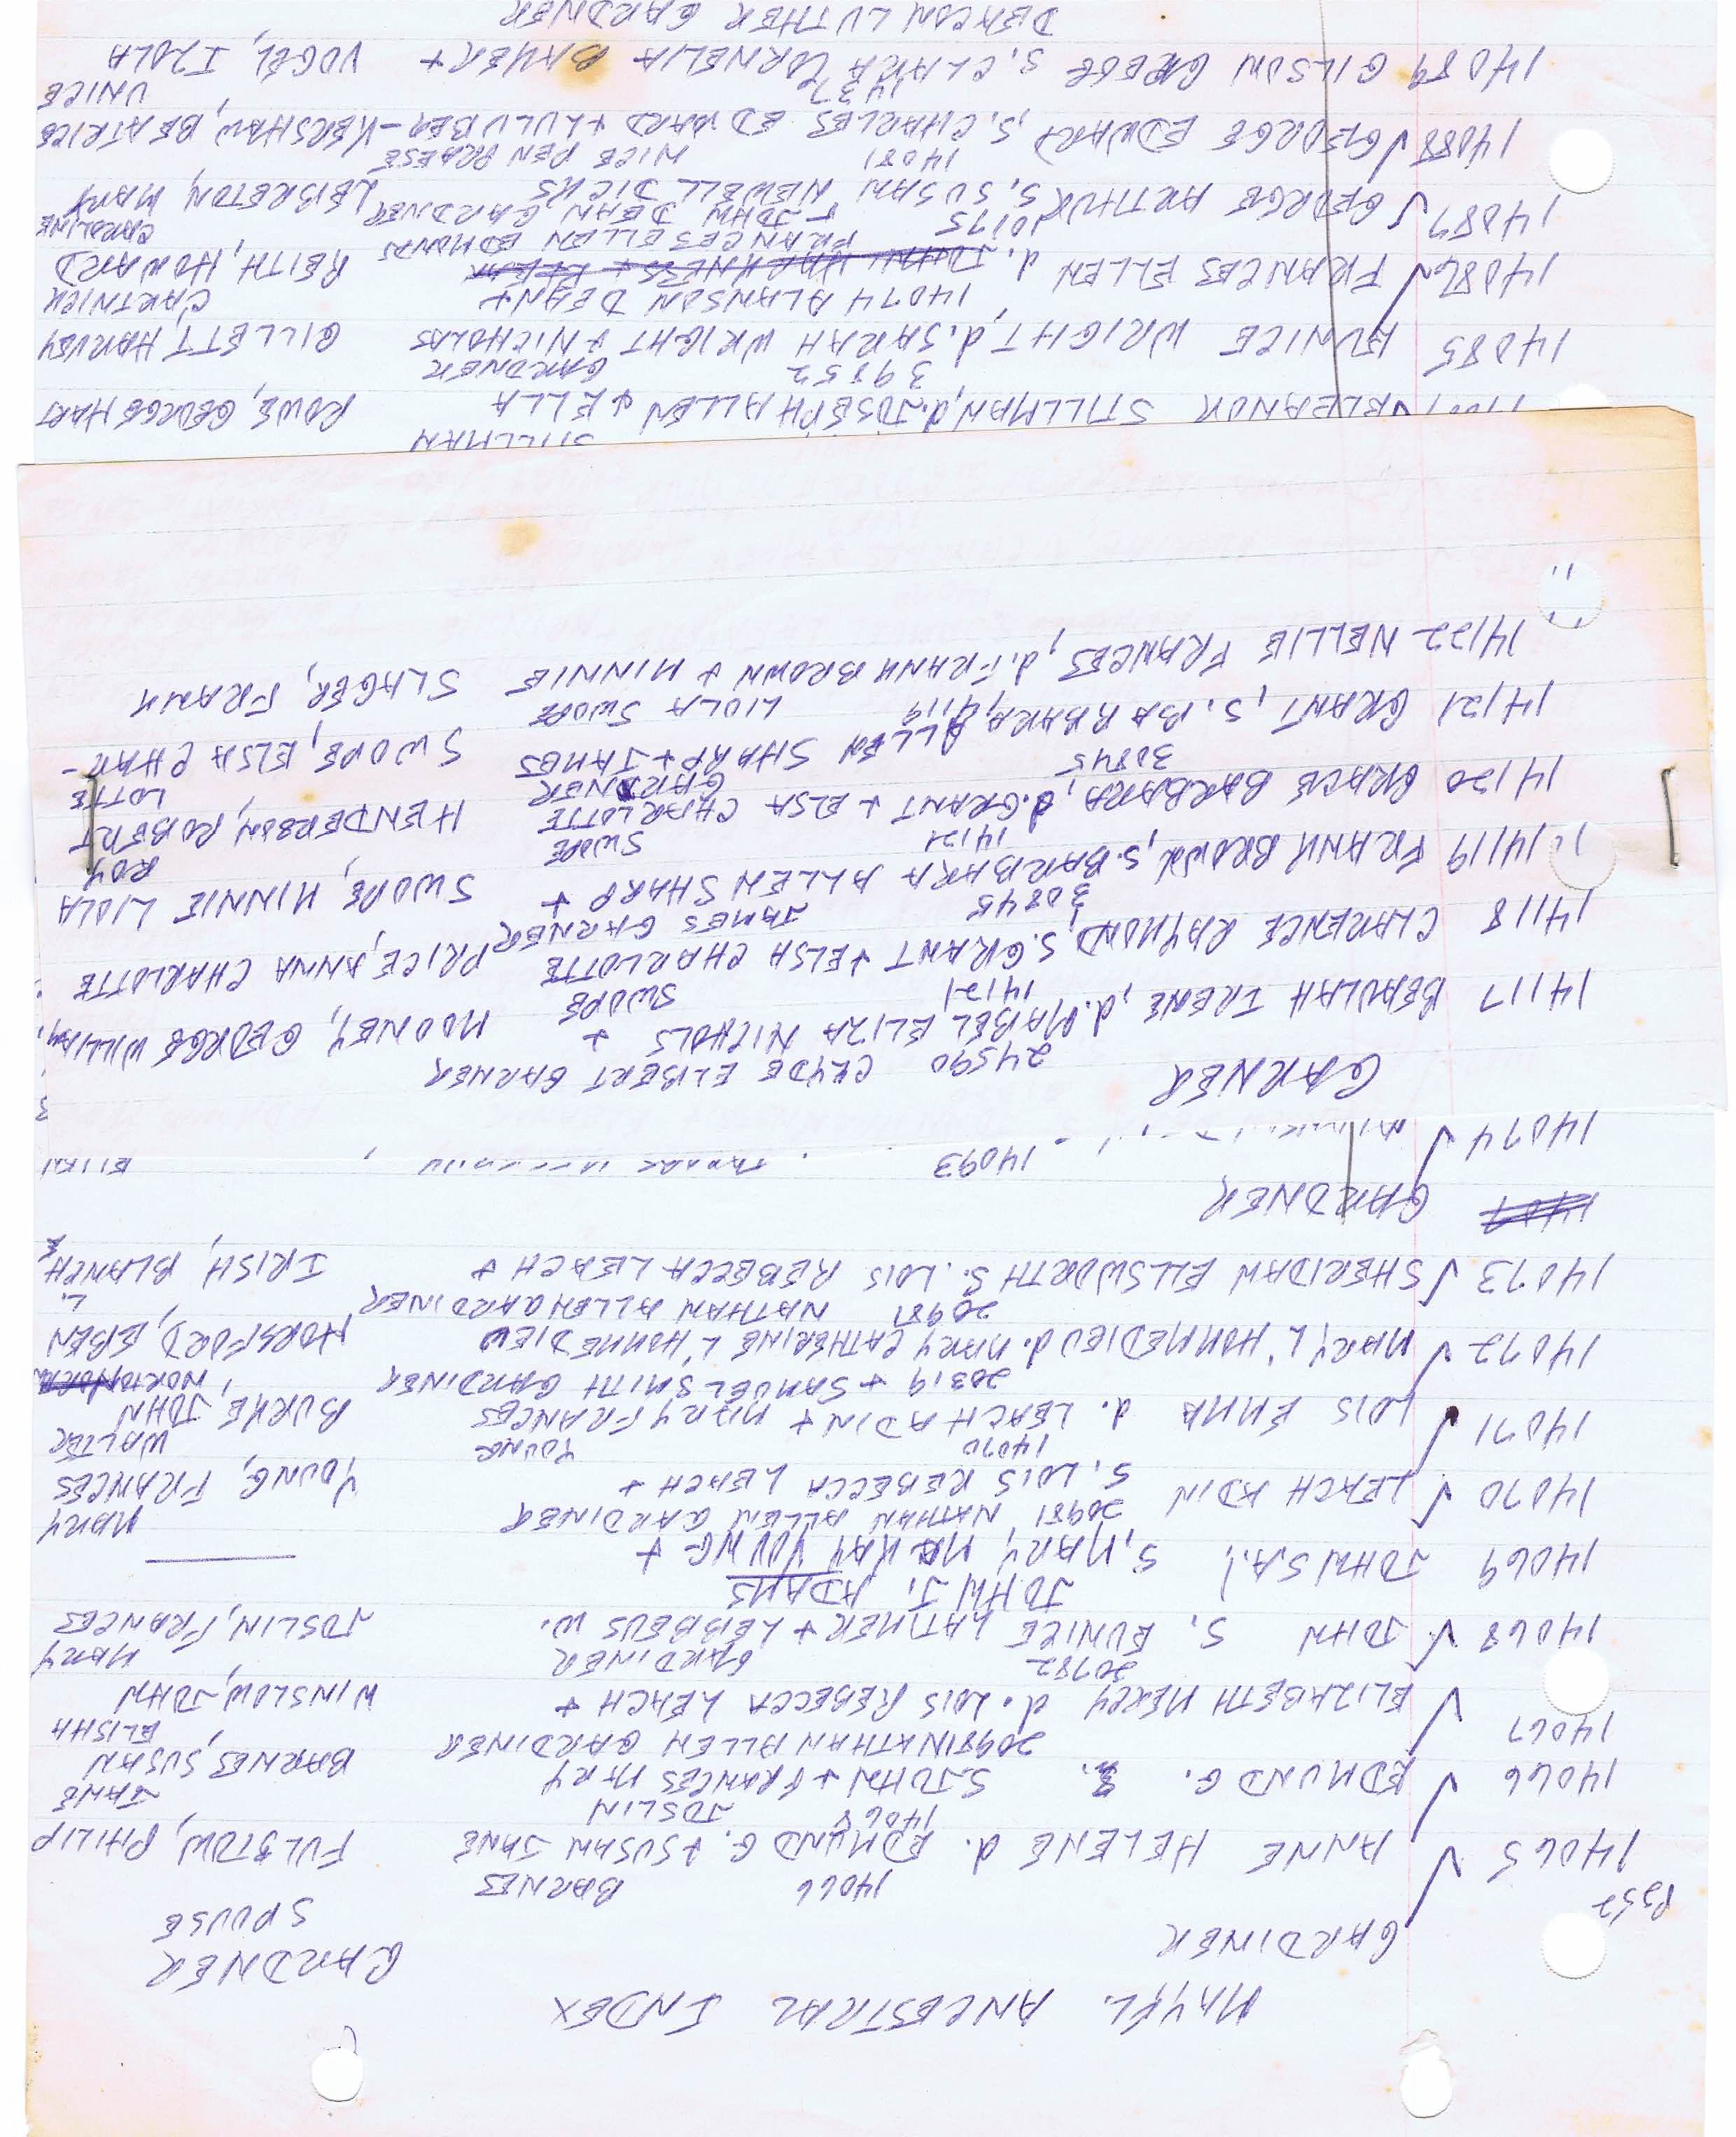 MAYFL. ANCESTRAL INDEX
GARDINER GARDNER
SPOUSE
P352
14065 ✓ ANNE HELENE d. EDMUND G. + SUSAN JANE FULSTOW, PHILIP
14066 BARNES
14066 ✓ EDMUND G. S. JOHN + FRANCES MARY BARNES, SUSAN
14068 JOSLIN JANE
14067 ✓ ELIZABETH MERCY d. LOIS REBECCA LEACH + WINSLOW, JOHN
20981 NATHAN ALLEN GARDINER ELISHA
14068 ✓ JOHN S. EUNICE LATIMER + LEBBEUS W. JOSLIN, FRANCES
20782 GARDINER MARY
14069 JOHN S.A. S. MARY MAKAY YOUNG +
JOHN J. ADAMS
14070 ✓ LEACH ADIN S. LOIS REBECCA LEACH + YOUNG, FRANCES
20981 NATHAN ALLEN GARDINER MARY
14071 ✓ LOIS EMMA d. LEACH ADIN + MARY FRANCES BURKE, JOHN
14070 YOUNG WALTER
14072 ✓ MARY L'HOMMEDIEU d. MARY CATHERINE L'HOMMEDIEU HORSFORD, EBEN
20319 + SAMUEL SMITH GARDINER NORTON
14073 ✓ SHERIDAN ELLSWORTH S. LOIS REBECCA LEACH + IRISH, BLANCH
20981 NATHAN ALLEN GARDINER L.
GARDNER
14074 ✓
14093
GARNER
14117 BEAULAH IRENE, d. MABEL ELIZA NICHOLS + MOONEY, GEORGE WILLIAM
24590 CLYDE ELBERT GARNER
14118 CLARENCE RAYMOND, S. GRANT + ELSA CHARLOTTE PRICE, ANNA CHARLOTTE
14121 SWOPE
14119 FRANK BROWN, S. BARBARA ALLEN SHARP + SWOPE, MINNIE LIOLA
30845 JAMES GARNER
14120 GRACE BARBARA, d. GRANT + ELSA CHARLOTTE HENDERSON, ROBERT
14121 SWOPE ROY
14121 GRANT, S. BARBARA ALLEN SHARP + JAMES SWOPE, ELSA CHAR-
30845 GARDNER LOTTE
14122 NELLIE FRANCES, d. FRANK BROWN + MINNIE SLAGER, FRANK
14119 LIOLA SWOPE
STILLMAN
ELEANOR STILLMAN, d. JOSEPH ALLEN + ELLA ROWE, GEORGE HART
14085 EUNICE WRIGHT, d. SARAH WRIGHT + NICHOLAS GILLETT, HARVEY
39852 GARDNER
14086 ✓ FRANCES ELLEN d. JOHN REITH, HOWARD
14074 ALANSON DEAN + CARTNICK
14087 ✓ GEORGE ARTHUR, S. SUSAN NEWELL DICKS LEBRETON, MARY
10175 + JOHN DEAN GARDNER CAROLINE
FRANCES ELLEN EDMONDS
14088 ✓ GEORGE EDWARD, S. CHARLES EDWARD + LULU BER- KERSHAW, BEATRICE
14081 NICE PEN
14089 GILSON GREGE S. CLARA CORNELIA BAKER + VOGEL, IZOLA
1437 UNICE
DEACON LUTHER GARDNER